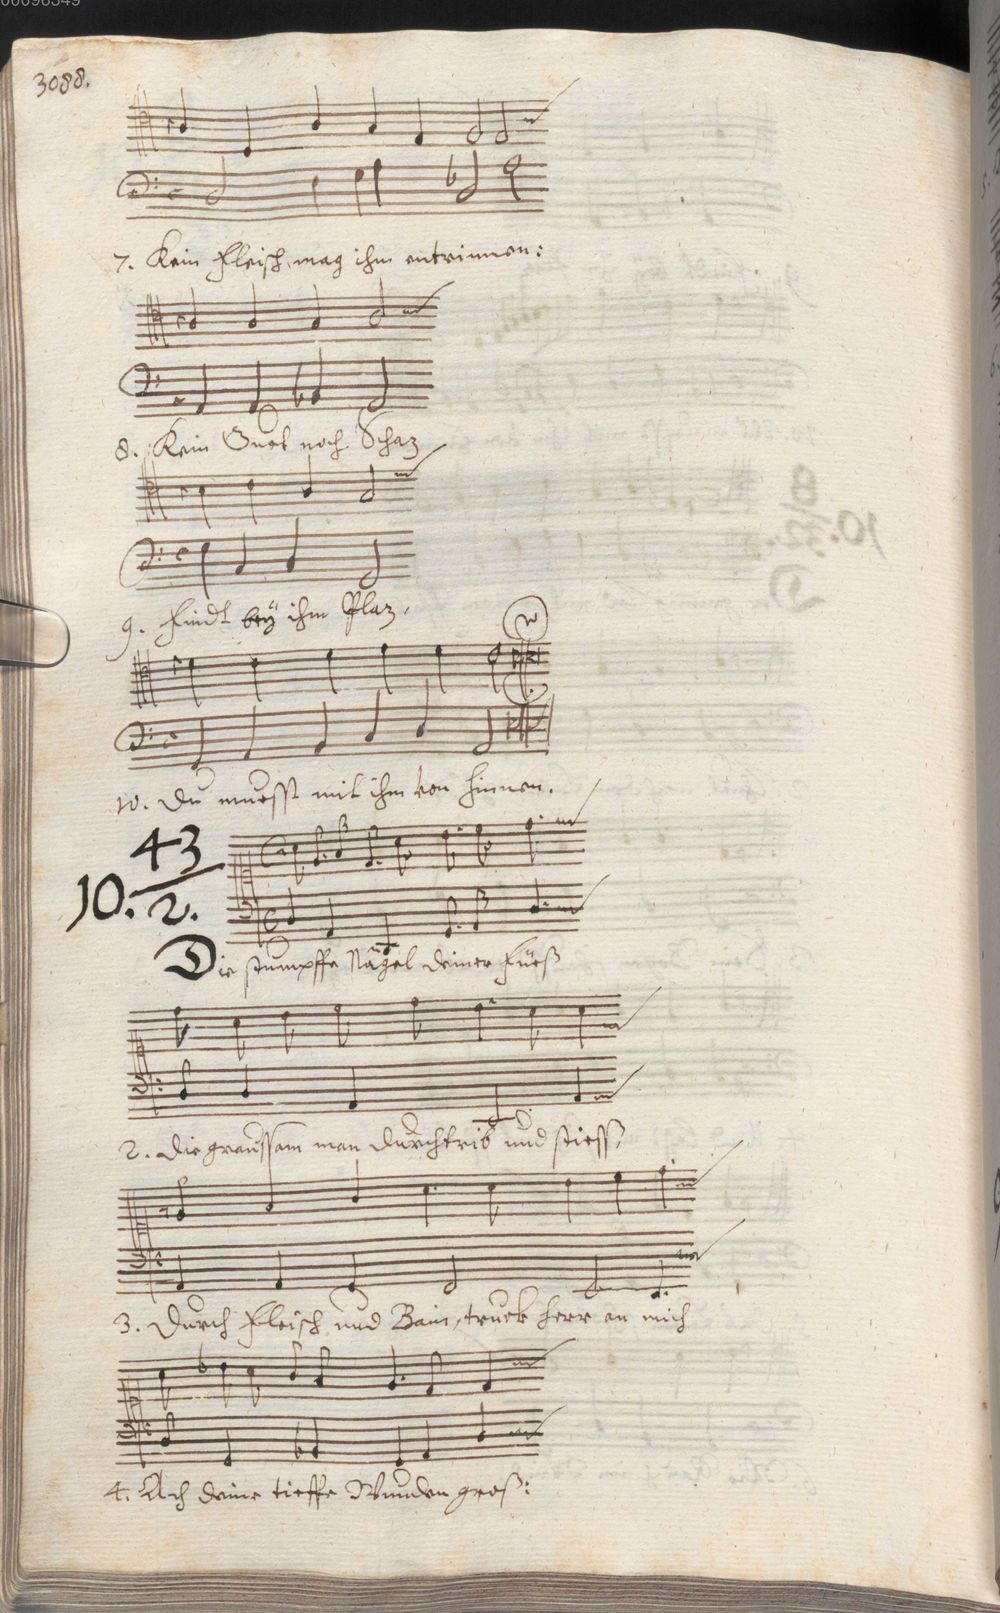 3088.
7. Kein Fleisch mag ihm entrinnen:
8. Kein Guet noch Schaz
9. Findt beÿ ihm Plaz,
10. Du muesst mit ihm von hinnen.
10. 43/2.
Die stumpffe Nägel deiner Füeß
2. Die graussam man durchtrib und stiess,
3. Durch Fleisch und Bain, truck herr an mich
4. Ach deine tieffe Wunden groß: